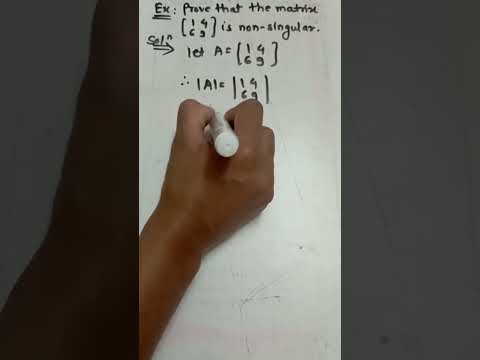 Ex: Prove that the matrix
[1 4
6 9] is non-singular.
Solⁿ let A = [1 4
6 9]
∴ |A| = |1 4
6 9|